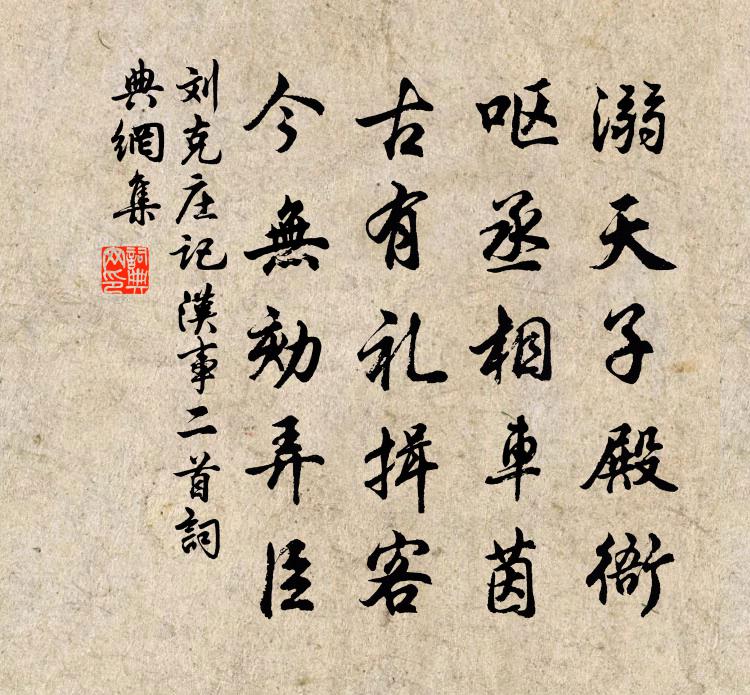 溺天子殿衙
呕丞相車茵
古有礼揖客
今無劾弄臣
刘克庄记漢事二首詞
典網集
詞典
网印